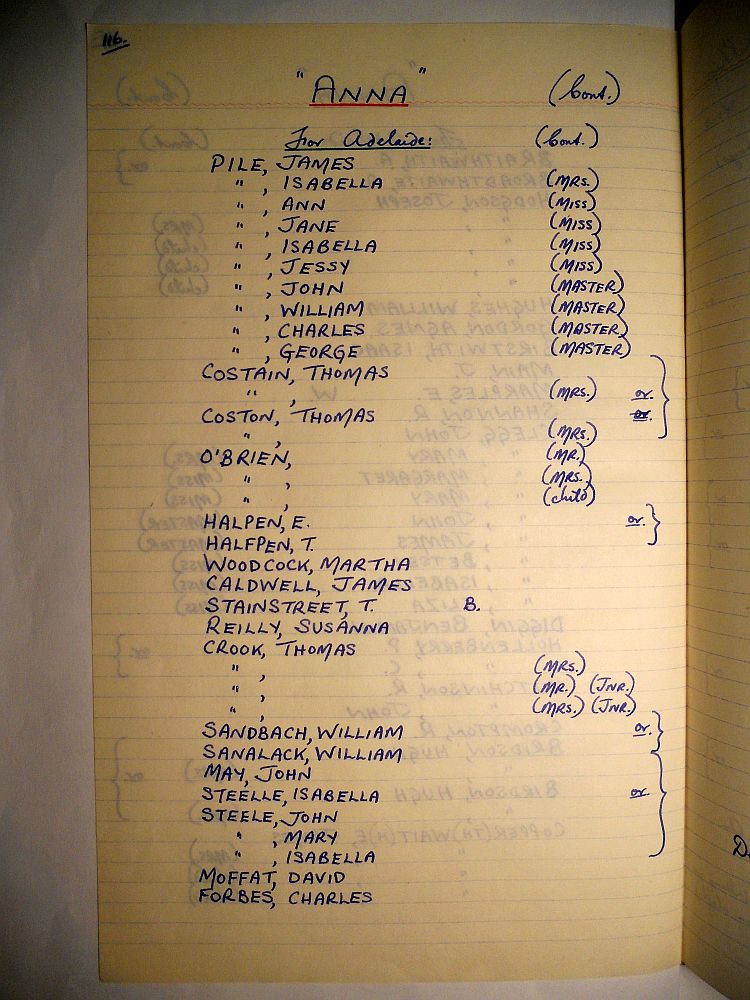 116.
"ANNA" (Cont.)
For Adelaide: (Cont.)
PILE, JAMES
" , ISABELLA (MRS.)
" , ANN (MISS)
" , JANE (MISS)
" , ISABELLA (MISS)
" , JESSY (MISS)
" , JOHN (MASTER)
" , WILLIAM (MASTER)
" , CHARLES (MASTER)
" , GEORGE (MASTER)
COSTAIN, THOMAS
" , (MRS.) or.
COSTON, THOMAS or.
" , (MRS.)
O'BRIEN, (MR.)
" , (MRS.)
" , (child)
HALPEN, E. or.
HALFPEN, T.
WOODCOCK, MARTHA
CALDWELL, JAMES
STAINSTREET, T. B.
REILLY, SUSANNA
CROOK, THOMAS
" , (MRS.)
" , (MR.) (JNR.)
" , (MRS.) (JNR.)
SANDBACH, WILLIAM or.
SANALACK, WILLIAM
MAY, JOHN
STEELLE, ISABELLA or.
STEELE, JOHN
" , MARY
" , ISABELLA
MOFFAT, DAVID
FORBES, CHARLES